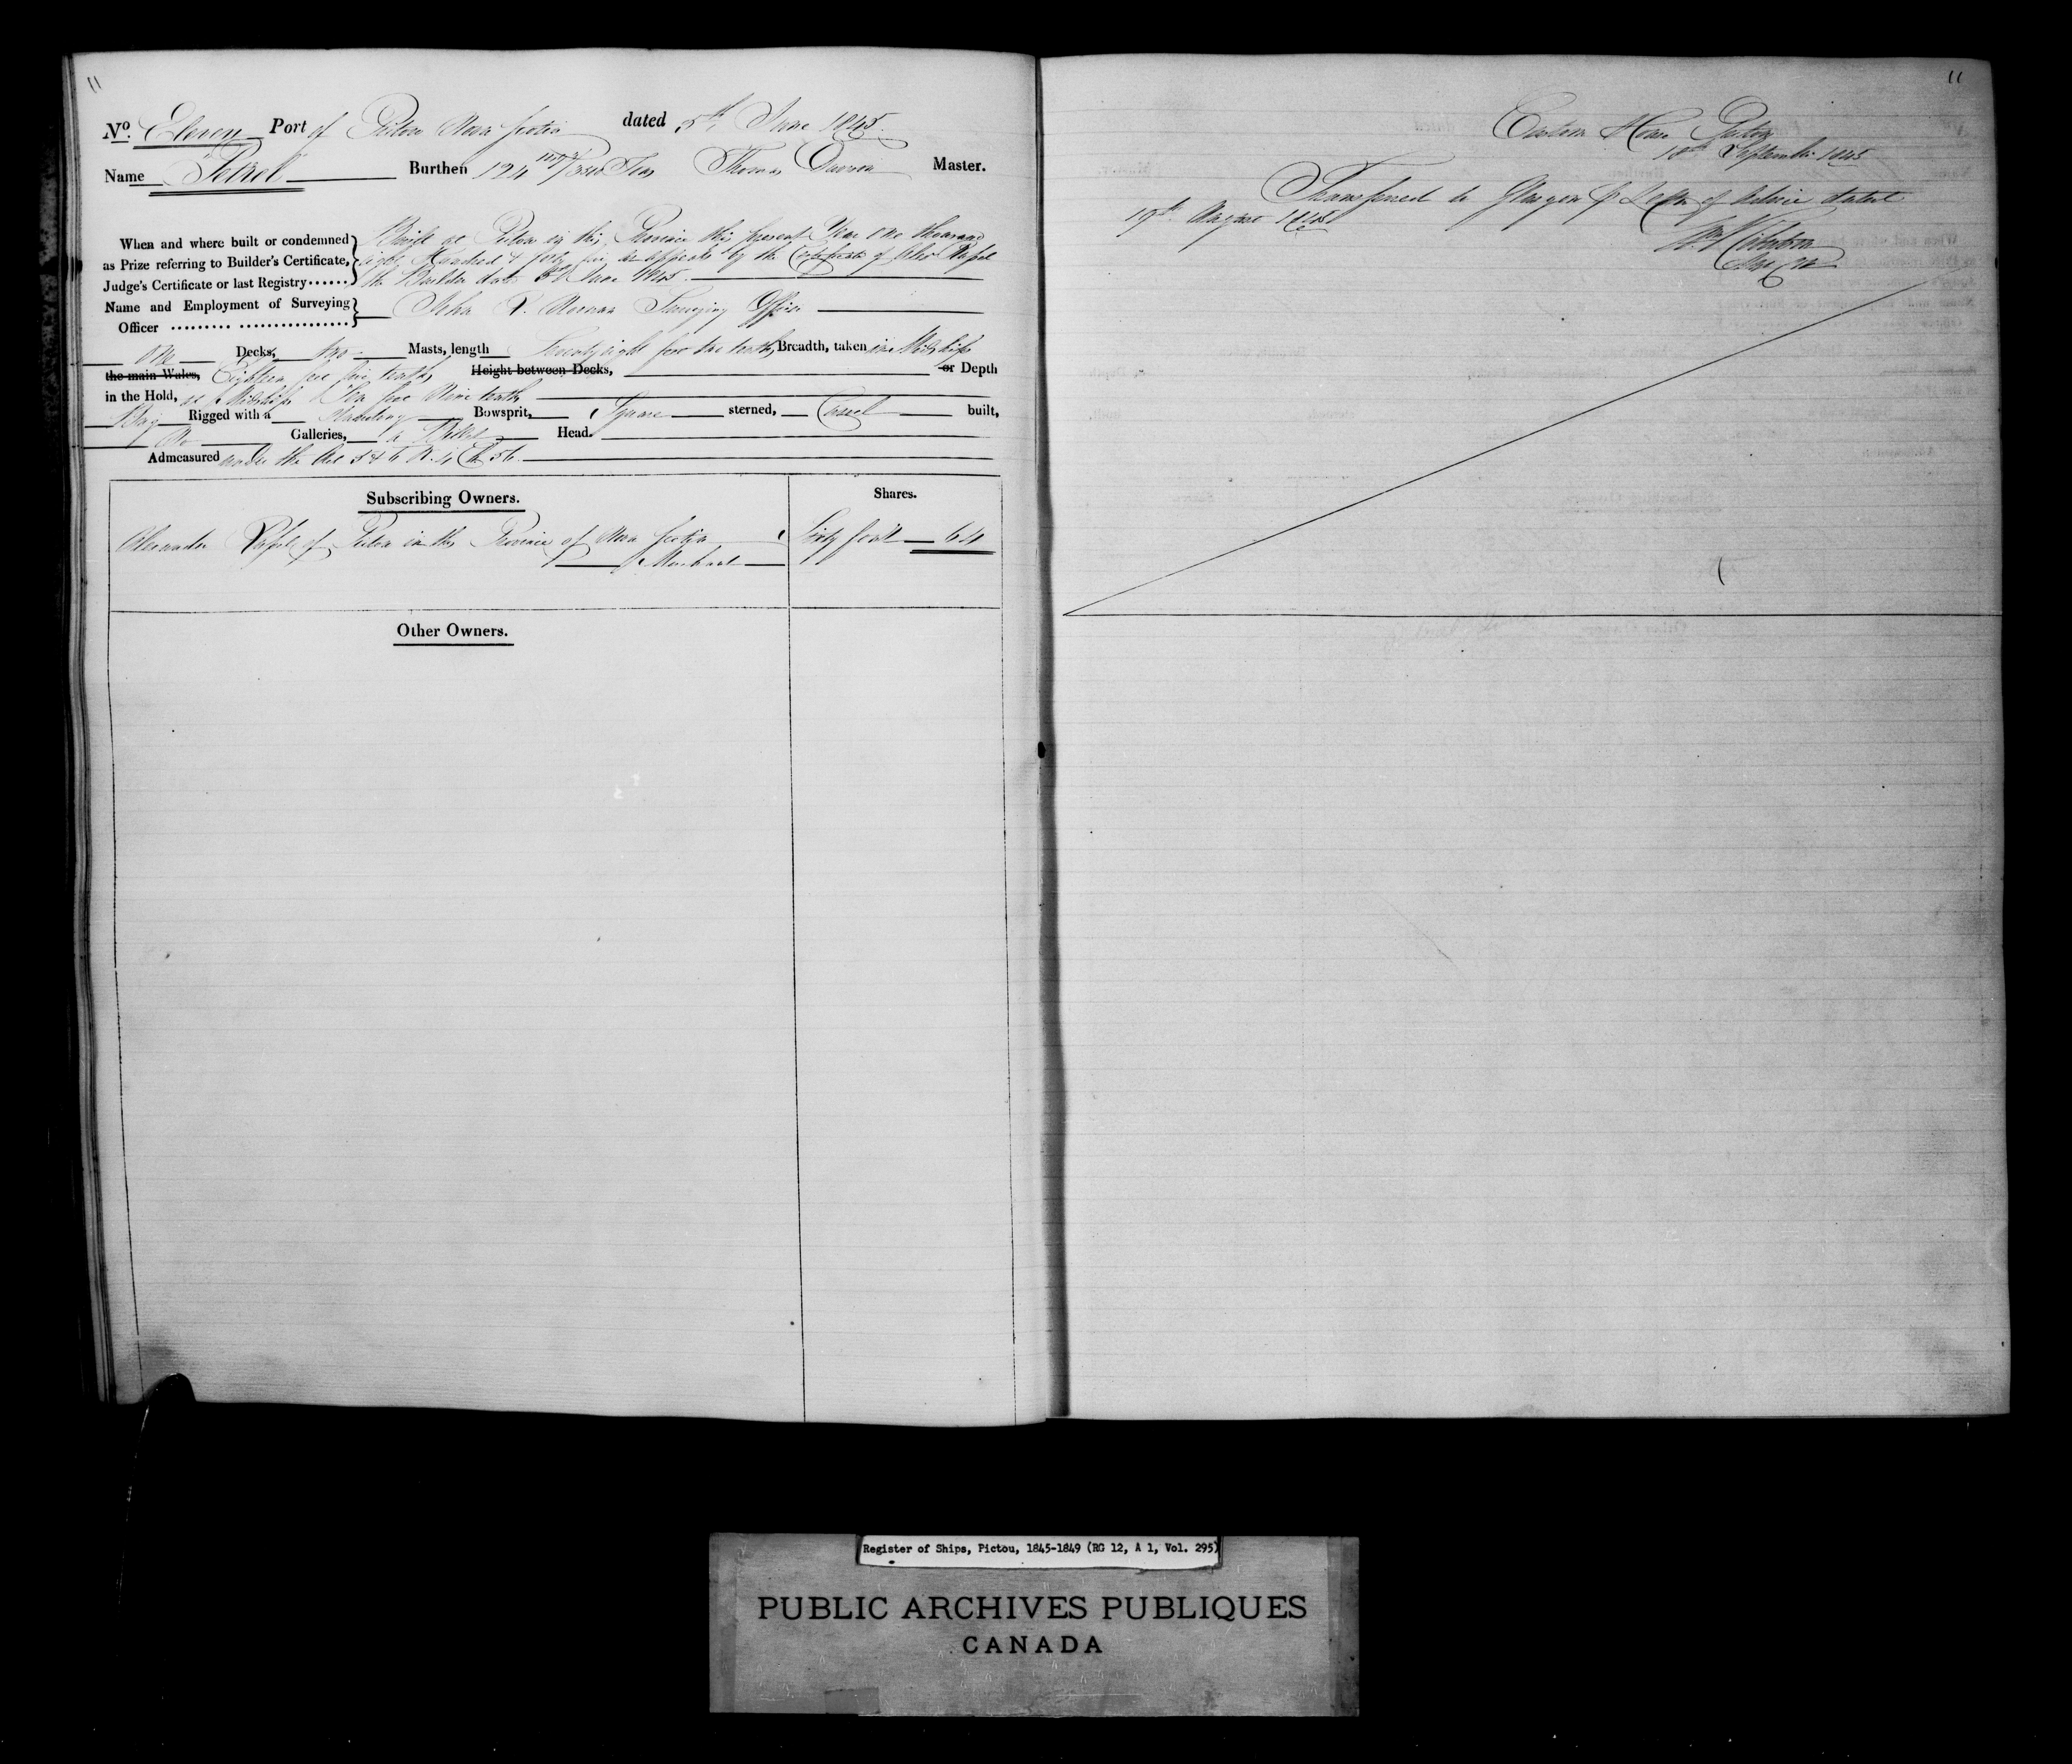 11
No. Eleven Port of Pictou Nova Scotia dated 5th June 1845.
Name Petrel Burthen 124 Tons Thomas Master.
When and where built or condemned as Prize referring to Builder's Certificate, Judge's Certificate or last Registry......
Built at Pictou in this Province this present Year one thousand
eight Hundred & forty five as appears by the Certificate of Alexr
the Builder dated 3rd June 1845.
Name and Employment of Surveying Officer ......... ................
John Noonan Surveying Officer
One Decks, two Masts, length Seventy eight feet two tenths, Breadth, taken in Midships
the main Wales, Eighteen feet five tenths, Height between Decks, or Depth
in the Hold, at Midships Ten feet Nine tenths
Brig Rigged with a Standing Bowsprit, Square sterned, Carvel built,
No Galleries, a Billet Head.
Admeasured under the Act 5 & 6 W. 4 Ch 56.
Subscribing Owners. Shares.
Alexander of Pictou in the Province of Nova Scotia Sixty four 64
Merchant
Other Owners.
11
Custom House Pictou
18th September 1845
Transferred to Glasgow Letter of Advice dated
19th August 1845
Register of Ships, Pictou, 1845-1849 (RG 12, A 1, Vol. 295)
PUBLIC ARCHIVES PUBLIQUES
CANADA